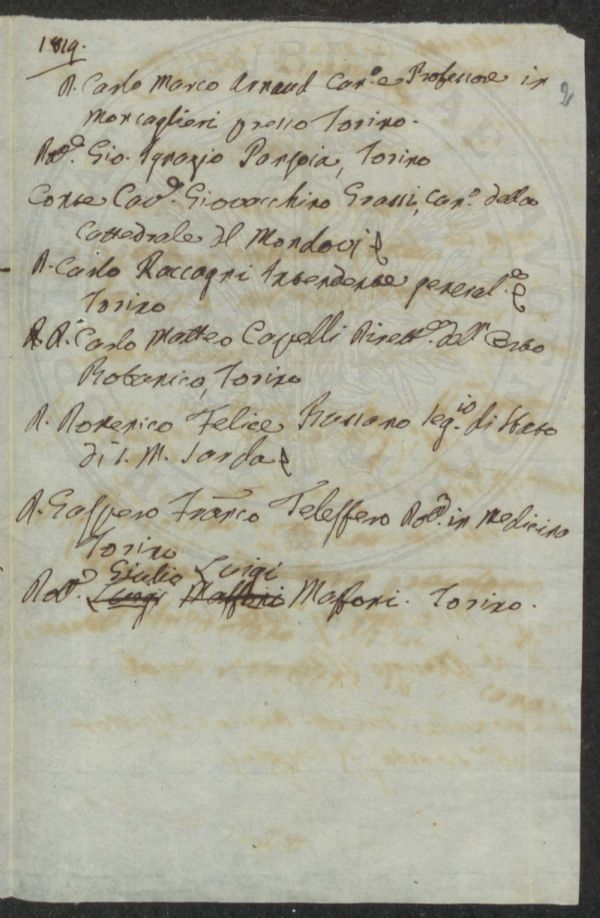 1819.
D. Carlo Marco Arnaud Can.º e Professore in
Moncaglieri presso Torino.
Dot.ᵉ Gio. Ignazio Pansoia, Torino
Conte Cav.ᵉ Giovacchino Grassi, Can.º della
Cattedrale di Mondovi
D. Carlo Raccagni Intendente general.ᵉ
Torino
D. Carlo Matteo Capelli Dirett.ᵉ dell' Orto
Botanico, Torino
D. Domenico Felice Seg.ⁱᵒ di Stato
di S. M. Sarda
D. Gaspero Franco Teleffero Dot.ᵉ in Medicina
Torino
Giulio Luigi
Dot.ᵉ Luigi Maffoni Maffoni. Torino.